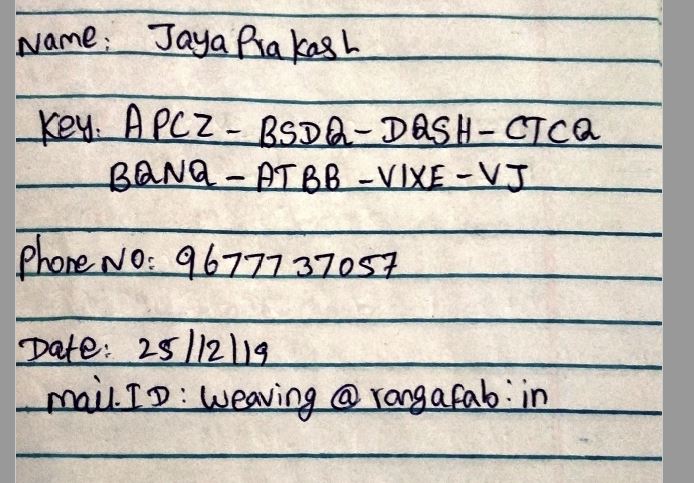 Name: Jaya Prakash
Key: APCZ - BSDQ - DQSH - CTCQ
BQNQ - ATBB - VIXE - VJ
Phone NO: 9677737057
Date: 25/12/19
mail.ID: weaving @ rangafab.in